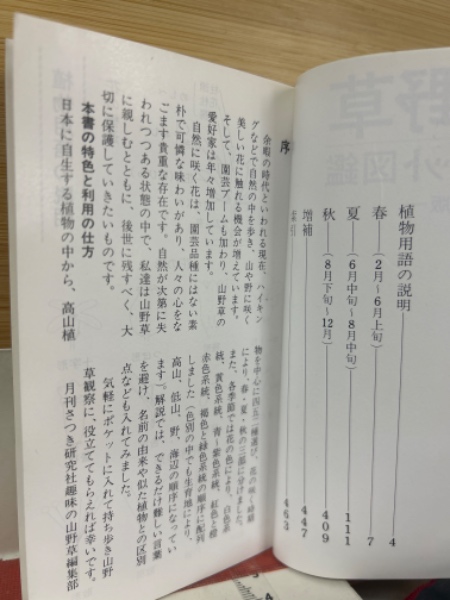 植物用語の説明 4
春 (2月〜6月上旬) 7
夏 (6月中旬〜8月中旬) 111
秋 (8月下旬〜12月) 409
増補 447
463
序
余暇の時代といわれる現在、ハイキン
グなどで自然の中を歩き、山や野に咲く
美しい花に触れる機会が増えています。
そして、園芸ブームも加わり、山野草の
愛好家は年々増加しています。
自然に咲く花は、園芸品種にはない素
朴で可憐な味わいがあり、人々の心をな
ごます貴重な存在です。自然が次第に失
われつつある状態の中で、私達は山野草
に親しむとともに、後世に残すべく、大
切に保護していきたいものです。
本書の特色と利用の仕方
日本に自生する植物の中から、高山植
物を中心に四五〇種選び、花の咲く時期
により、春・夏・秋の三部に分けました。
また、各季節では花の色により、白色系
統、黄色系統、青〜紫色系統、紅色と橙
赤色系統、褐色と緑色系統の順序に配列
しました(色別の中でも生育地により、
高山、低山、野、海辺の順序になってい
ます)。解説では、できるだけ難しい言葉
を避け、名前の由来や似た植物との区別
点なども入れてみました。
気軽にポケットに入れて持ち歩き山野
草観察に、役立ててもらえれば幸いです。
月刊さつき研究社趣味の山野草編集部